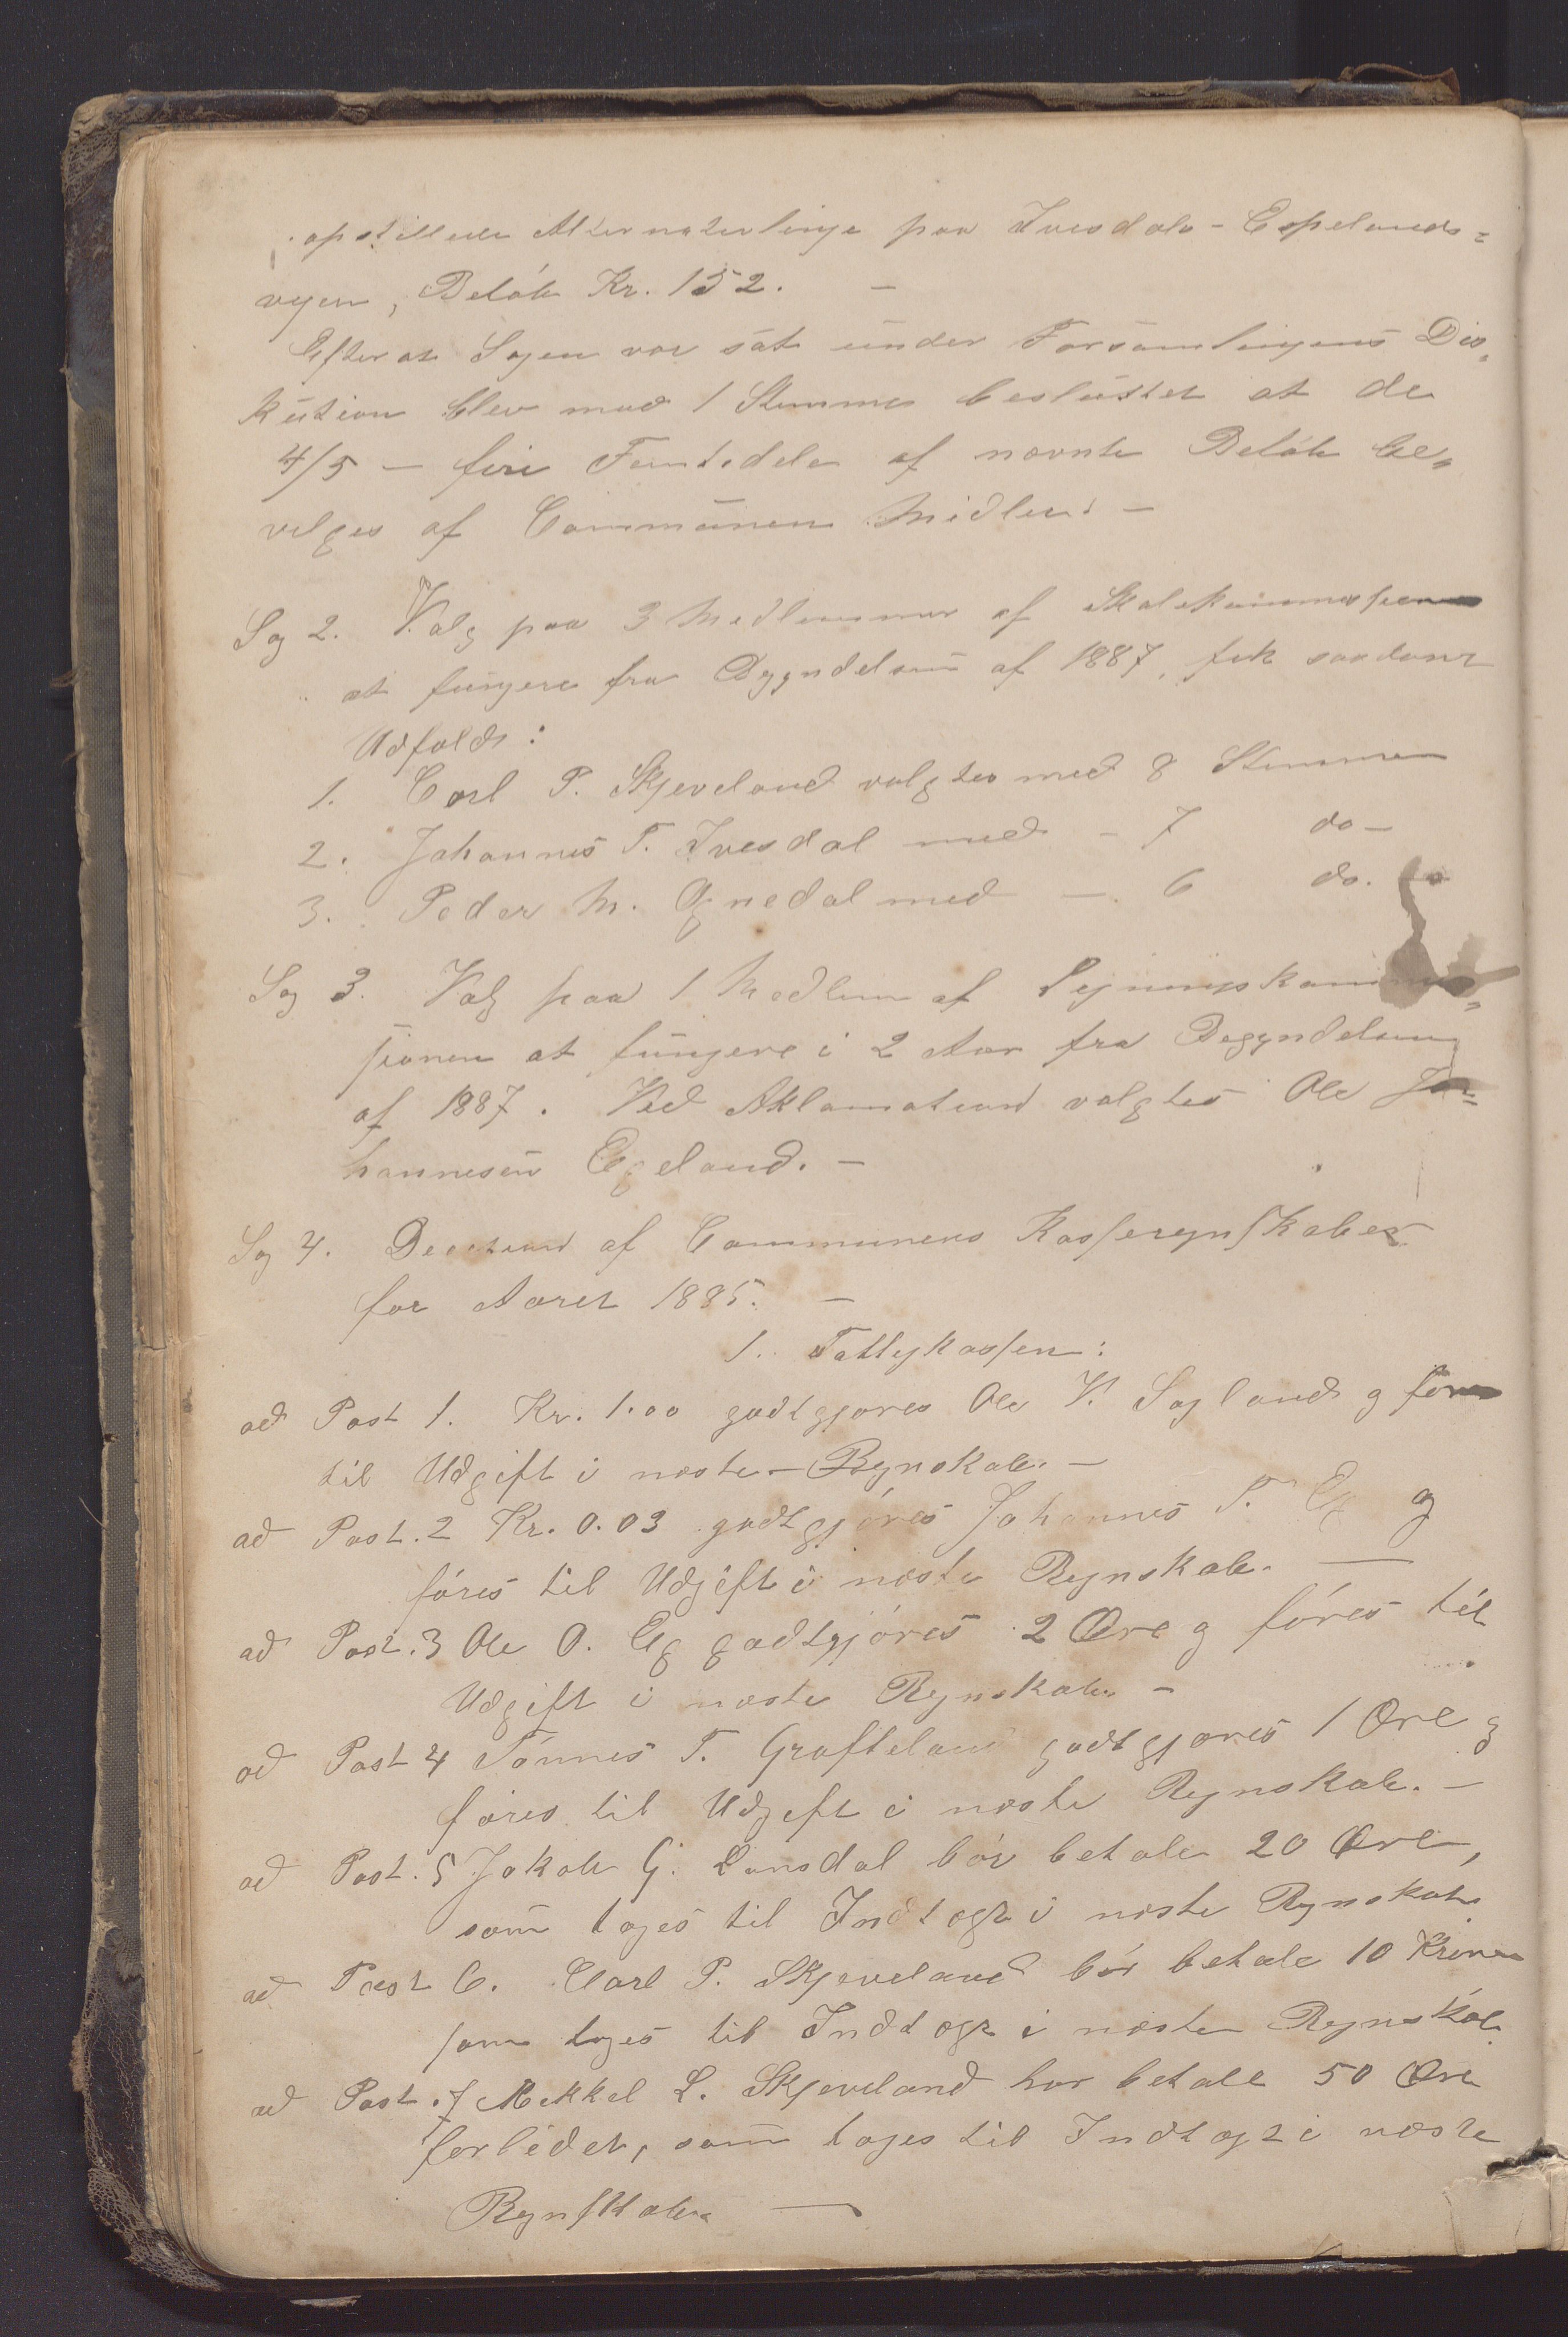 opstillede Alternativlinje paa Ivesdals-Espelands=
vejen, Beløb Kr. 152. —
Efter at Sagen var sat under Forsamlingens Dis„
kution blev mod 1 Stemme besluttet at de
4/5 — fire Femtedele af nævnte Beløb be„
velges af Communens Midler. —
Sag 2. Valg paa 3 Medlemmer af Skolekommissionen
at fungere fra Begyndelsen af 1887, fik saadant
Udfald:
1. Carl P. Skjeveland valgtes med 8 Stemmer
2. Johannes T. Ivesdal med – 7 do –
3. Peder M. Ognedal med — 6 do. –
Sag 3. Valg paa 1 Medlem af Ligningskommis„
sionen at fungere i 2 Aar fra Begyndelsen
af 1887. Ved Aklamation valgtes Ole Jo=
hannesen Egeland. —
Sag 4. Decision af Communens Kasseregnskaber
for Aaret 1885. —
1. Fattigkassen:
ad Post 1. Kr. 1.00 godtgjøres Ole V. Sagland og føres
til Udgift i næste Regnskab. —
ad Post. 2 Kr. 0.03 godtgjøres Johannes T. Eg og
føres til Udgift i næste Regnskab. —
ad Post. 3 Ole O. Eg godtgjøres 2 Øre og føres til
Udgift i næste Regnskab. —
ad Post 4 Tønnes T. Grøfteland godtgjøres 1 Øre og
føres til Udgift i næste Regnskab. —
ad Post. 5 Jakob G. bør betale 20 Øre,
som tages til Indtægt i næste Regnskab
ad Post 6. Carl P. Skjeveland bør betale 10 Kroner
som tages til Indtægt i næste Regnskab.
ad Post. 7 Mikkel L. Skjeveland har betalt 50 Øre
forlidet, som tages til Indtægt i næste
Regnskab. —